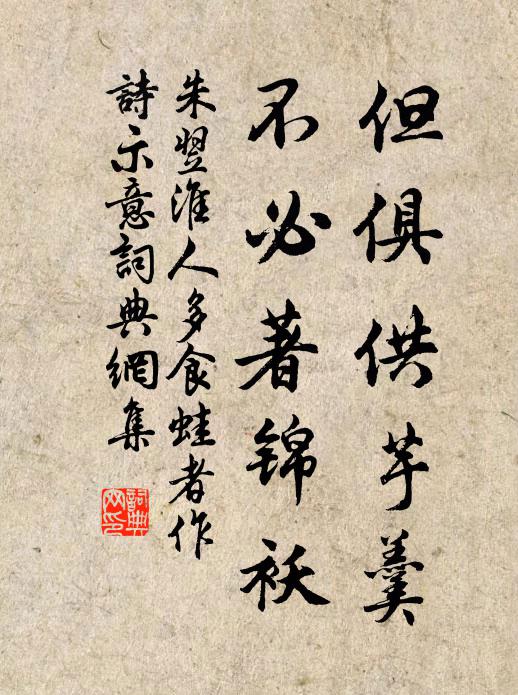 但俱供芋羹
不必著锦袄
朱翌淮人多食蛙者作
詩示意詞典網集
詞典
网印